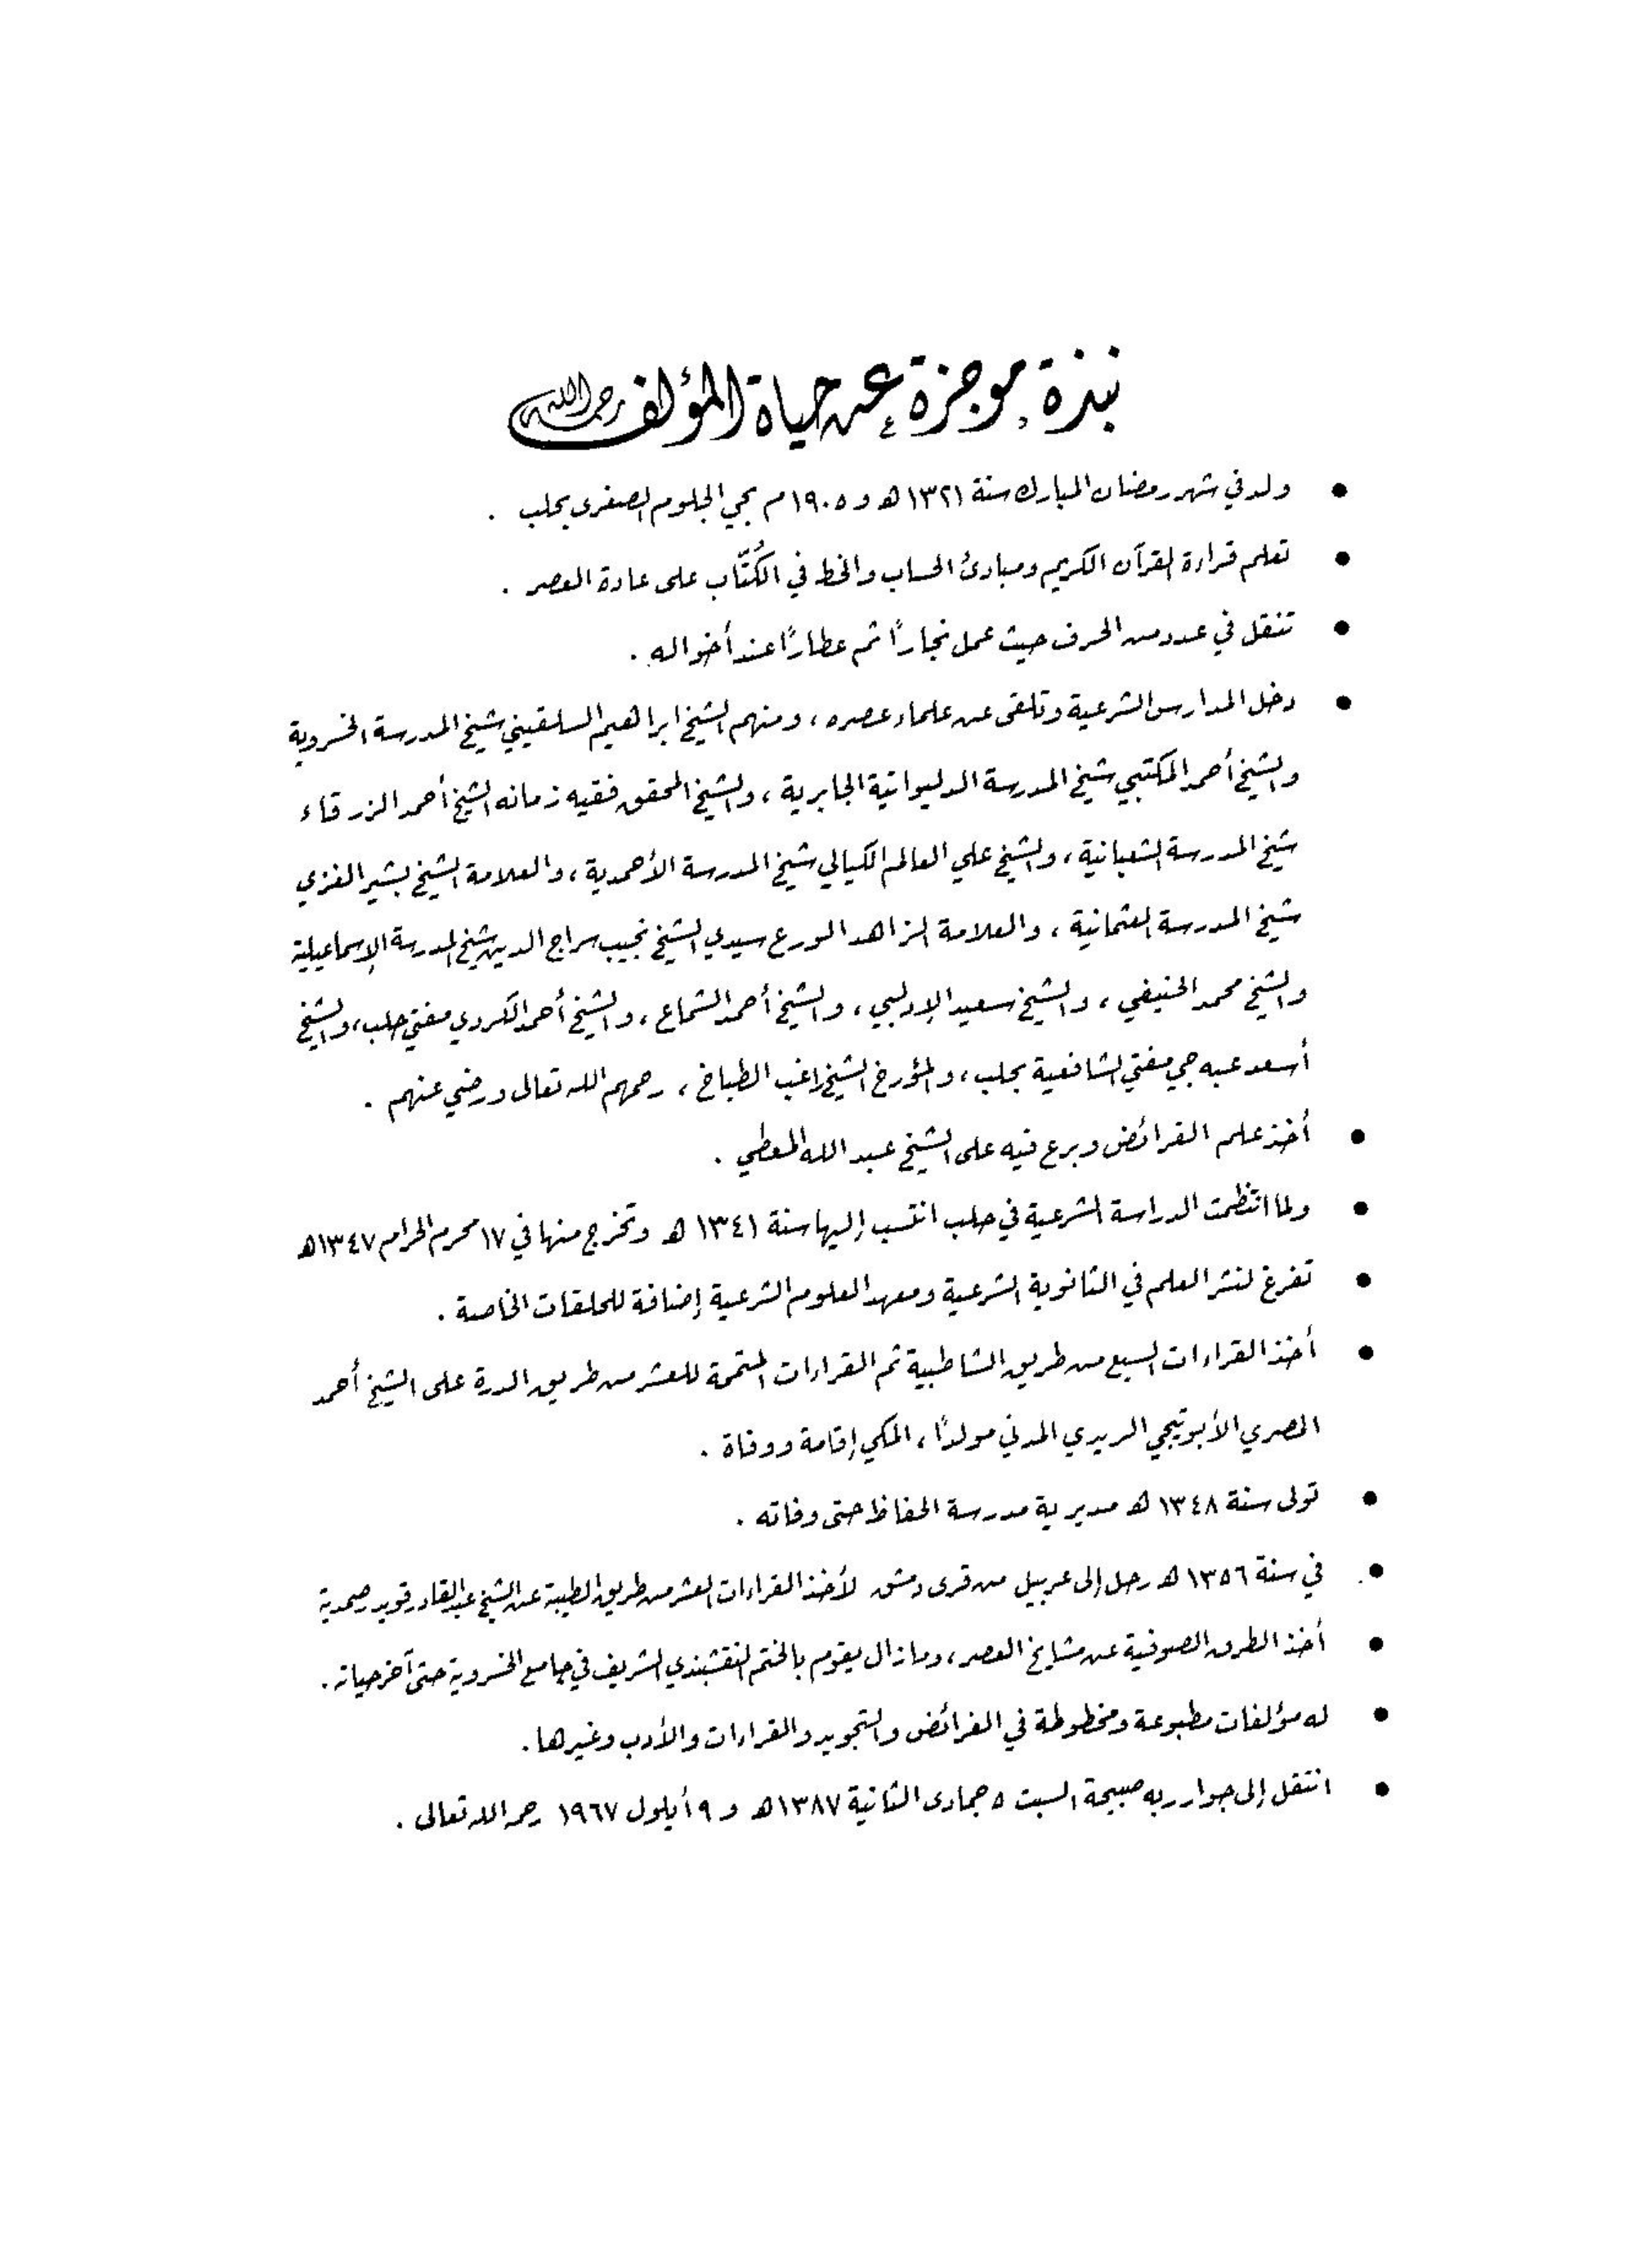 نبذة موجزة عن حياة المؤلف رحمه الله
• ولد في شهر رمضان المبارك سنة ١٣٢١ هـ و ١٩٠٥ م بحي الجلوم الصغرى بحلب .
• تعلم قراءة القرآن الكريم ومبادئ الحساب والخط في الكُتّاب على عادة العصر .
• تنقل في عدد من الحرف حيث عمل نجارًا ثم عطارًا عند أخواله .
• دخل المدارس الشرعية وتلقى عن علماء عصره ، ومنهم الشيخ ابراهيم السلقيني شيخ المدرسة الخسروية
والشيخ أحمد المكتبي شيخ المدرسة الدليواتية الجابرية ، والشيخ المحقق فقيه زمانه الشيخ أحمد الزرقاء
شيخ المدرسة الشعبانية ، والشيخ علي العالم الكيالي شيخ المدرسة الأحمدية ، والعلامة الشيخ بشير الغزي
شيخ المدرسة العثمانية ، والعلامة الزاهد الورع سيدي الشيخ نجيب سراج الدين شيخ المدرسة الإسماعيلية
والشيخ محمد الحنيفي ، والشيخ سعيد الإدلبي ، والشيخ أحمد الشماع ، والشيخ أحمد الكردي مفتي حلب ، والشيخ
أسعد عبه جي مفتي الشافعية بحلب ، والمؤرخ الشيخ راغب الطباخ ، رحمهم الله تعالى ورضي عنهم .
• أخذ علم الفرائض وبرع فيه على الشيخ عبد الله المعطي .
• ولما انتظمت الدراسة الشرعية في حلب انتسب إليها سنة ١٣٤١ هـ وتخرج منها في ١٧ محرم الحرام ١٣٤٧ هـ
• تفرغ لنشر العلم في الثانوية الشرعية ومعهد العلوم الشرعية إضافة للحلقات الخاصة .
• أخذ القراءات السبع من طريق الشاطبية ثم القراءات المتممة للعشر من طريق الدرة على الشيخ أحمد
المصري الأبوتيجي الريدي المدني مولدًا ، المكي إقامة ووفاة .
• تولى سنة ١٣٤٨ هـ مديرية مدرسة الحفاظ حتى وفاته .
• في سنة ١٣٥٦ هـ رحل إلى عربيل من قرى دمشق لأخذ القراءات العشر من طريق الطيبة عن الشيخ عبد القادر قويدر صمدية
• أخذ الطرق الصوفية عن مشايخ العصر ، وما زال يقوم بالختم النقشبندي الشريف في جامع الخسروية حتى آخر حياته .
• له مؤلفات مطبوعة ومخطوطة في الفرائض والتجويد والقراءات والأدب وغيرها .
• انتقل إلى جوار ربه صبيحة السبت ٥ جمادى الثانية ١٣٨٧ هـ و ٩ أيلول ١٩٦٧ رحمه الله تعالى .